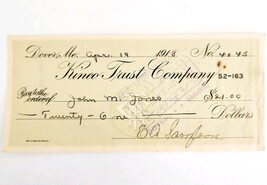 Dover, Me. Apr. 18 1918 No. 4045
Kineo Trust Company 52-163
Pay to the order of John M. Jones $21.00
Twenty-One Dollars